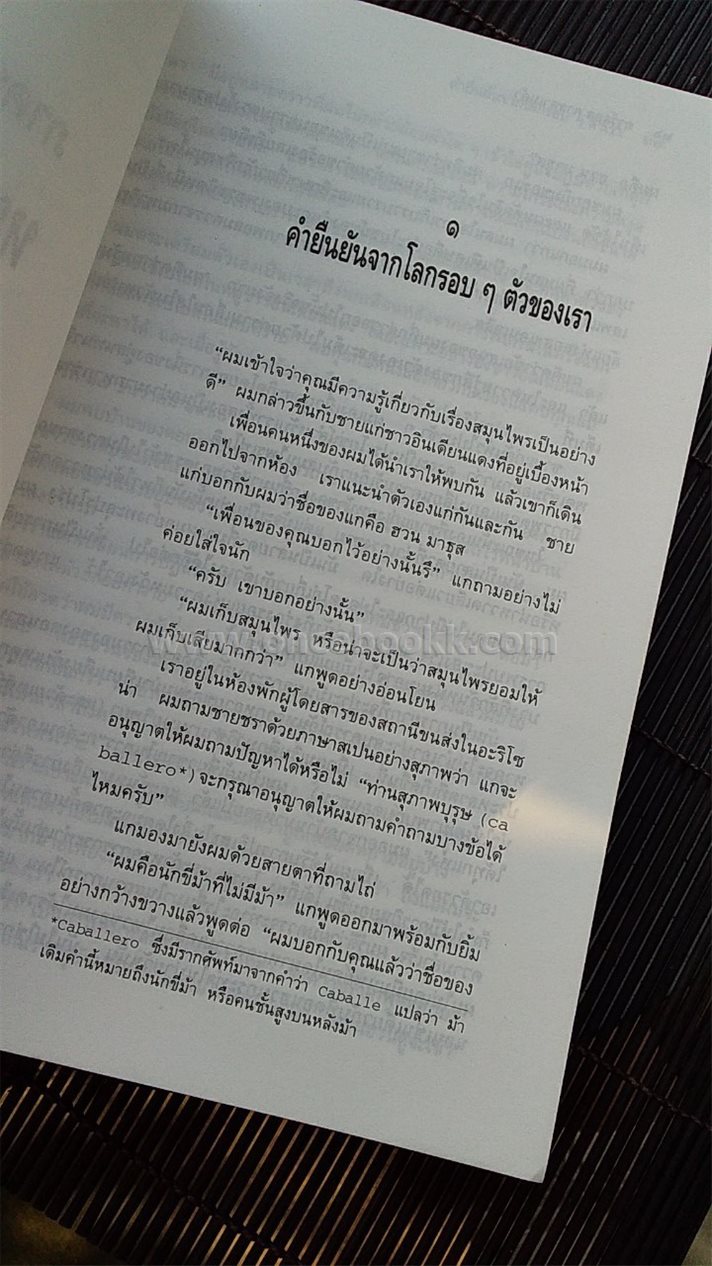 ๑
คำยืนยันจากโลกรอบ ๆ ตัวของเรา
“ผมเข้าใจว่าคุณมีความรู้เกี่ยวกับเรื่องสมุนไพรเป็นอย่าง
ดี” ผมกล่าวขึ้นกับชายแก่ชาวอินเดียนแดงที่อยู่เบื้องหน้า
เพื่อนคนหนึ่งของผมได้นำเราให้พบกัน แล้วเขาก็เดิน
ออกไปจากห้อง เราแนะนำตัวเองแก่กันและกัน ชาย
แก่บอกกับผมว่าชื่อของแกคือ ฮวน มาธุส
“เพื่อนของคุณบอกไว้อย่างนั้นรึ” แกถามอย่างไม่
ค่อยใส่ใจนัก
“ครับ เขาบอกอย่างนั้น”
“ผมเก็บสมุนไพร หรือน่าจะเป็นว่าสมุนไพรยอมให้
ผมเก็บเสียมากกว่า” แกพูดอย่างอ่อนโยน
เราอยู่ในห้องพักผู้โดยสารของสถานีขนส่งในอะริโซ
น่า ผมถามชายชราด้วยภาษาสเปนอย่างสุภาพว่า แกจะ
อนุญาตให้ผมถามปัญหาได้หรือไม่ “ท่านสุภาพบุรุษ (ca
ballero*)จะกรุณาอนุญาตให้ผมถามคำถามบางข้อได้
ไหมครับ”
แกมองมายังผมด้วยสายตาที่ถามไถ่
“ผมคือนักขี่ม้าที่ไม่มีม้า” แกพูดออกมาพร้อมกับยิ้ม
อย่างกว้างขวางแล้วพูดต่อ “ผมบอกกับคุณแล้วว่าชื่อของ
*Caballero ซึ่งมีรากศัพท์มาจากคำว่า Caballe แปลว่า ม้า
เดิมคำนี้หมายถึงนักขี่ม้า หรือคนชั้นสูงบนหลังม้า